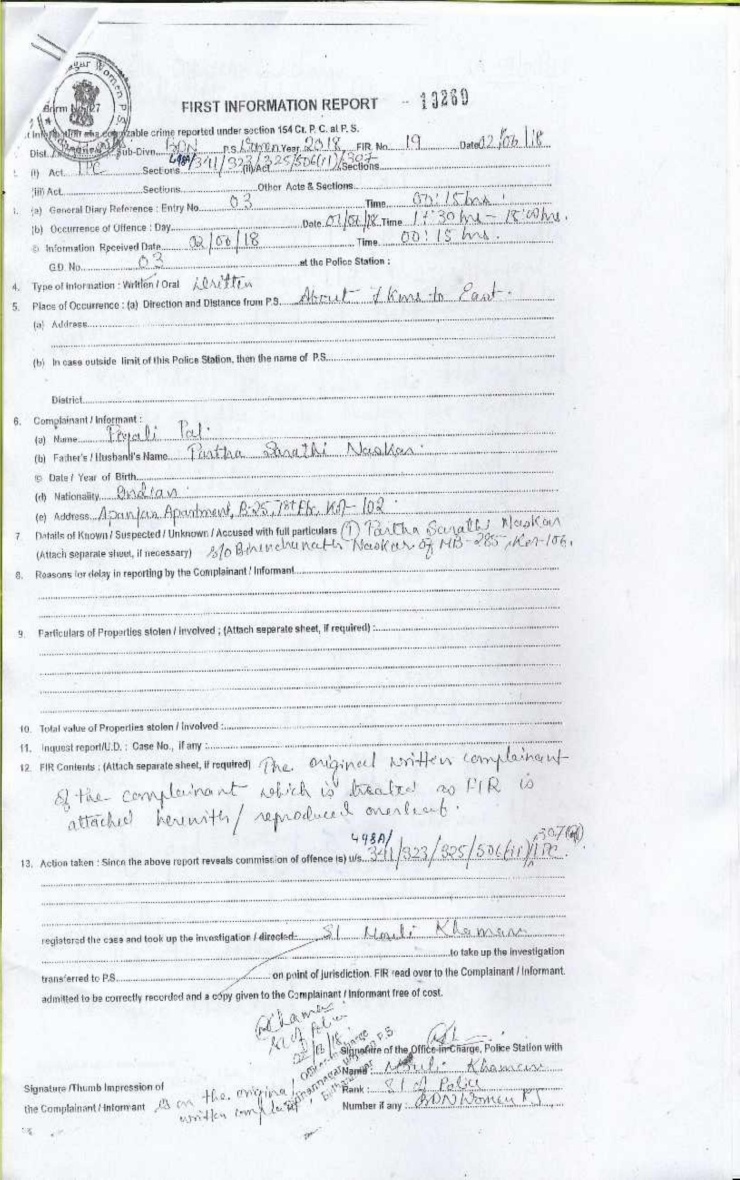 FIRST INFORMATION REPORT - 13269
cognizable crime reported under section 154 Cr. P. C. at P. S.
Dist. Sub-Divn. BDN P.S. Women Year 2018 FIR No. 19 Date 02/06/18
(i) Act IPC Sections 498A/341/323/325/506(II)/307 (ii) Act Sections
(iii) Act Sections Other Acts & Sections
(a) General Diary Reference : Entry No. 03 Time 00:15 hrs.
(b) Occurrence of Offence : Day Date 01/06/18 Time 17:30 hrs - 18:00 hrs.
© Information Received Date 02/06/18 Time 00:15 hrs.
G.D. No. 03 at the Police Station :
4. Type of information : Written / Oral Written
5. Place of Occurrence : (a) Direction and Distance from P.S. About 1 Kms to East.
(a) Address
(b) In case outside limit of this Police Station, then the name of P.S.
District
6. Complainant / Informant :
(a) Name Pal.
(b) Father's / Husband's Name Partha Sarathi Naskar.
© Date / Year of Birth
(d) Nationality Indian
(e) Address Apanjan Apartment, B-25, 1st Flr, Kol-102.
7. Details of Known / Suspected / Unknown / Accused with full particulars (1) Partha Sarathi Naskar
(Attach separate sheet, if necessary) S/o Naskar of MB-285, Kol-106.
8. Reasons for delay in reporting by the Complainant / Informant
9. Particulars of Properties stolen / involved ; (Attach separate sheet, if required) :
10. Total value of Properties stolen / involved :
11. Inquest report/U.D. : Case No., if any :
12. FIR Contents : (Attach separate sheet, if required) The original written complainant
of the complainant which is treated as FIR is
attached herewith / reproduced overleaf.
13. Action taken : Since the above report reveals commission of offence (s) u/s. 498A/341/323/325/506(II)/307 IPC.
registered the case and took up the investigation / directed SI Mouli Khaman
to take up the investigation
transferred to P.S. on point of jurisdiction. FIR read over to the Complainant / Informant.
admitted to be correctly recorded and a copy given to the Complainant / Informant free of cost.
SI of Police
Signature of the Office-in-Charge, Police Station with
Name : Mouli Khaman
Signature /Thumb Impression of Rank : SI of Police
the Complainant / Informant is on the original written complaint, Number if any : BDN Women PS